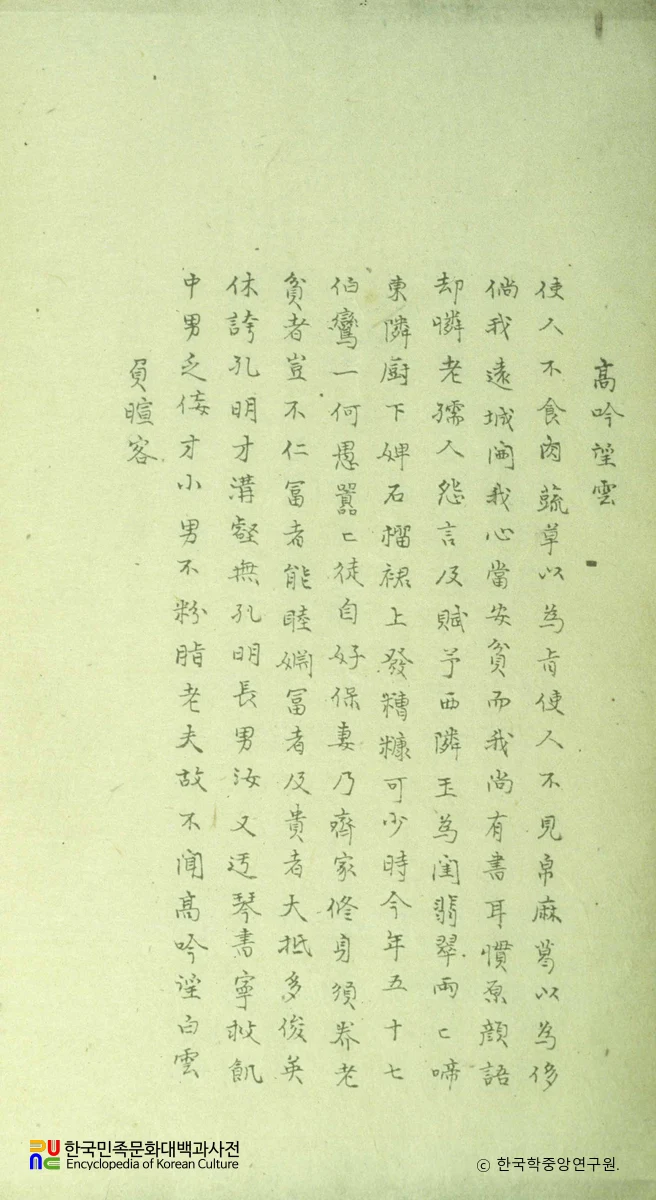 高吟望雲
使人不食肉蔬草以為旨使人不見帛麻葛以為侈
倘我遠城闉我心當安貧而我尚有書耳慣原顔語
却憐老孺人怨言及賦予西隣玉為閨翡翠兩〻啼
東隣廚下婢石榴裙上發糟糠可少時今年五十七
伯鸞一何愚囂〻徒自好保妻乃齊家修身須养老
貧者豈不仁冨者能睦婣冨者及貴者大抵多俊英
休誇孔明才溝壑無孔明長男汝又迂琴書寧救飢
中男乏侫才小男不粉脂老夫故不聞高吟望白雲
負暄客
한국민족문화대백과사전
Encyclopedia of Korean Culture
© 한국학중앙연구원.